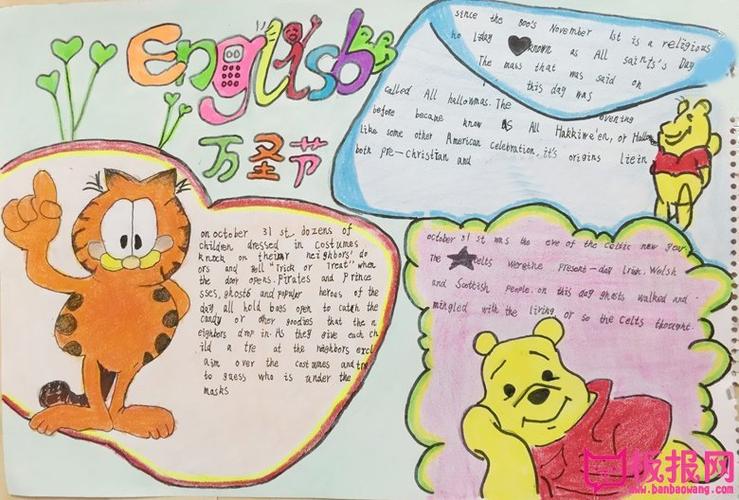 English
万圣节
since the 800's November 1st is a religious
holiday known as All saints's Day
The mass that was said on
this day was
called All hallowmas. The evening
before became know as All Hakkiwe'en, or Hallow
like some other American celebration, it's origins lie in
both pre-christian and
on october 31 st. dozens of
children dressed in costumes
knock on their neighbors' do
ors and yell "Trick or Treat" when
the door opens. Pirates and Prince
sses, ghosts and popular heroes of the
day all hold bags open to catch the
candy or other goodies that the n
eighbors drop in. As they give each ch
ild a tre at the neighbors excl
aim over the costumes and try
to guess who is under the
masks
october 31 st was the eve of the Celtic new year.
The celts were the present-day Irish, Welsh
and Scottish people. on this day ghosts walked and
mingled with the living or so the Celts thought.
板报网
www.banbaowang.com